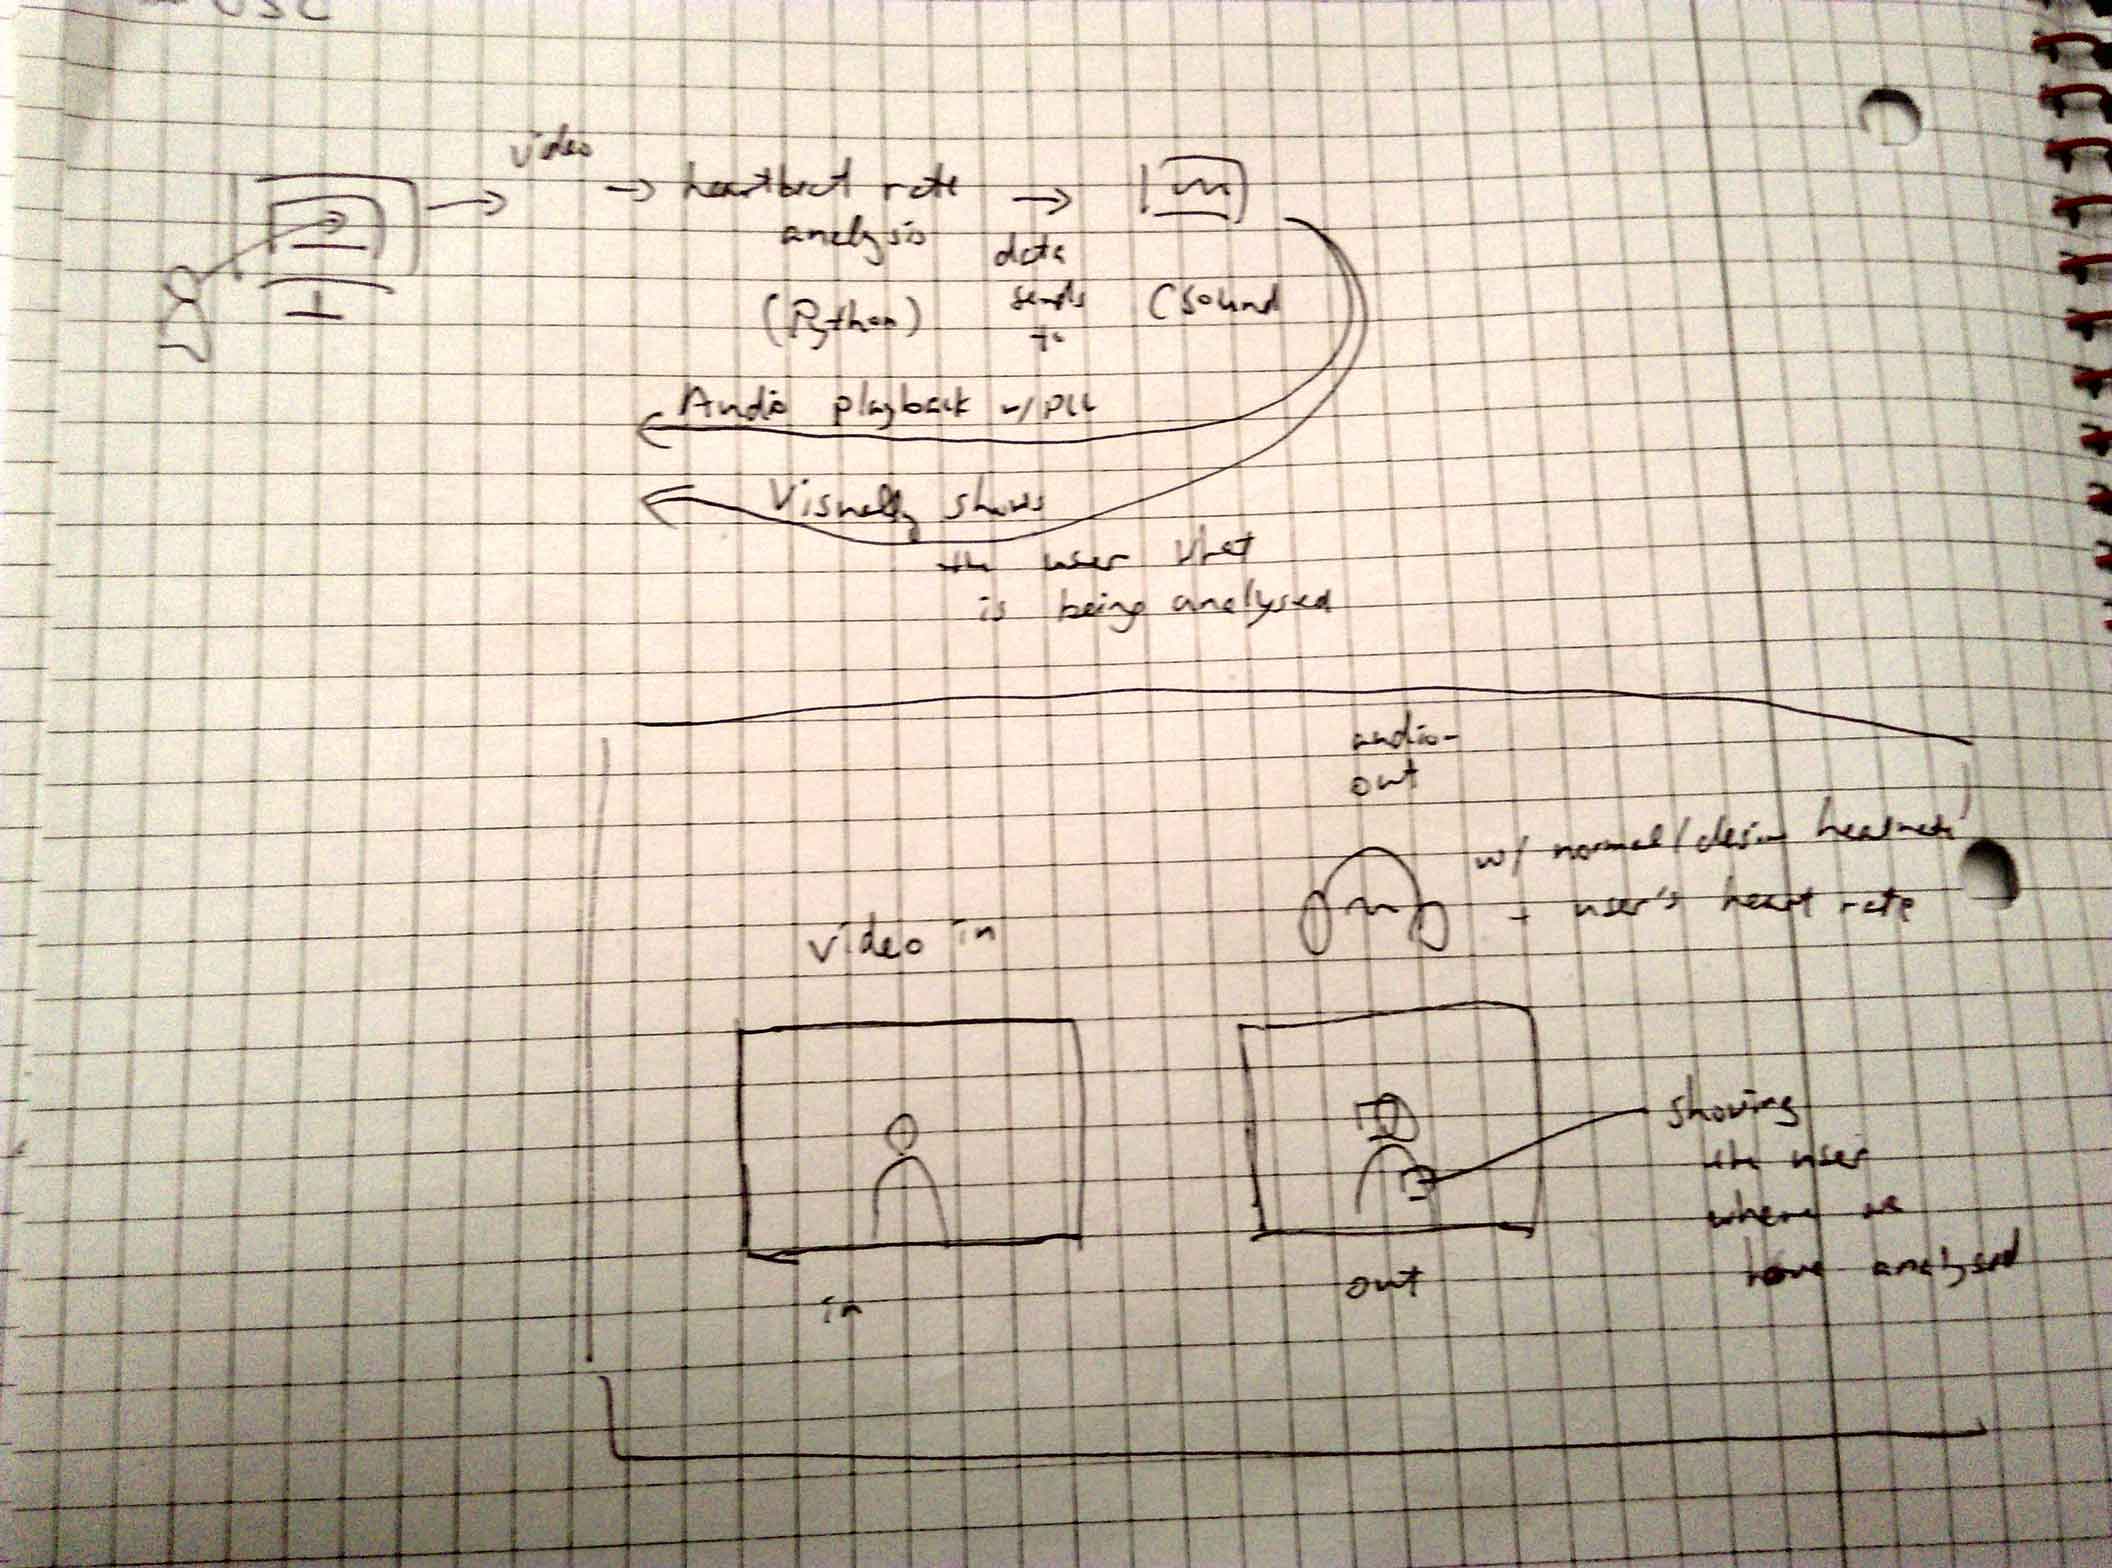 video
heartbeat rate
analysis
(Python)
data
sends
to
(Sound
Audio playback w/
Visually shows
the user what
is being analysed
audio-
out
w/ normal /
+ user's heart rate
video in
in
out
showing
the user
where we
have analysed